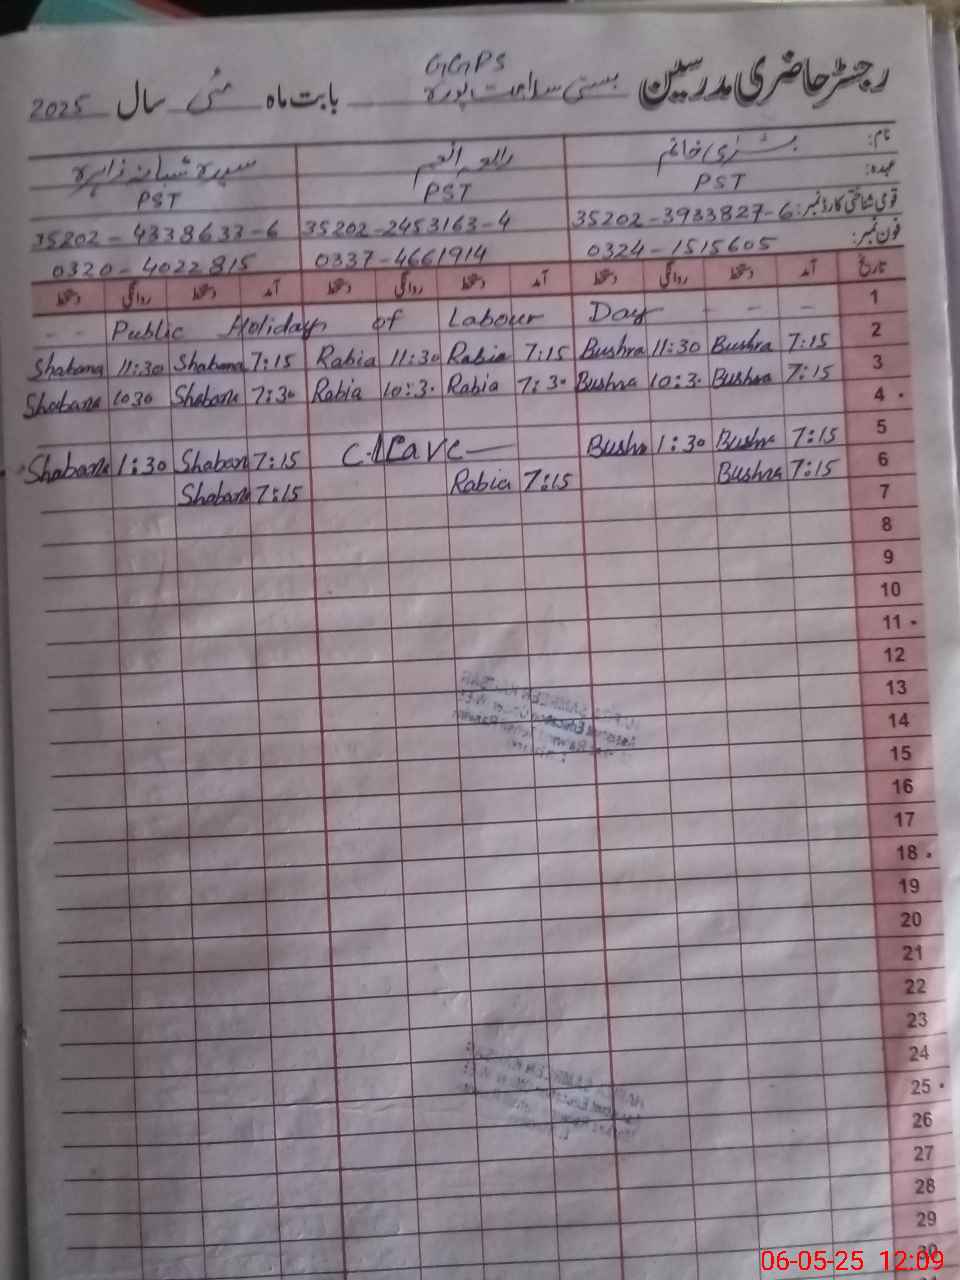 GGPS
رجسٹر حاضری مدرسین بستی سلامت پورہ بابت ماہ مئی سال 2025
نام: بشریٰ خانم رابعہ انعم سیدہ شبانہ زاہرہ
عہدہ: PST PST PST
قومی شناختی کارڈ نمبر: 35202-3933827-6 35202-2453163-4 35202-4338633-6
فون نمبر: 0324-1515605 0337-4661914 0320-4022815
تاریخ آمد دستخط روانگی دستخط آمد دستخط روانگی دستخط آمد دستخط روانگی دستخط
1
-- Public Holiday of Labour Day - - -
2
Shabana 11:30 Shabana 7:15 Rabia 11:30 Rabia 7:15 Bushra 11:30 Bushra 7:15
3
Shabana 1030 Shabana 7:30 Rabia 10:3. Rabia 7:30 Bushra 10:3. Bushra 7:15
4 .
5
Shabana 1:30 Shaban 7:15 C.Leave Bushr 1:30 Bushr 7:15
6
Shabana 7:15 Rabia 7:15 Bushra 7:15
7
8
9
10
11 .
12
13
14
15
16
17
18 .
19
20
21
22
23
24
25 .
26
27
28
29
30
06-05-25 12:09